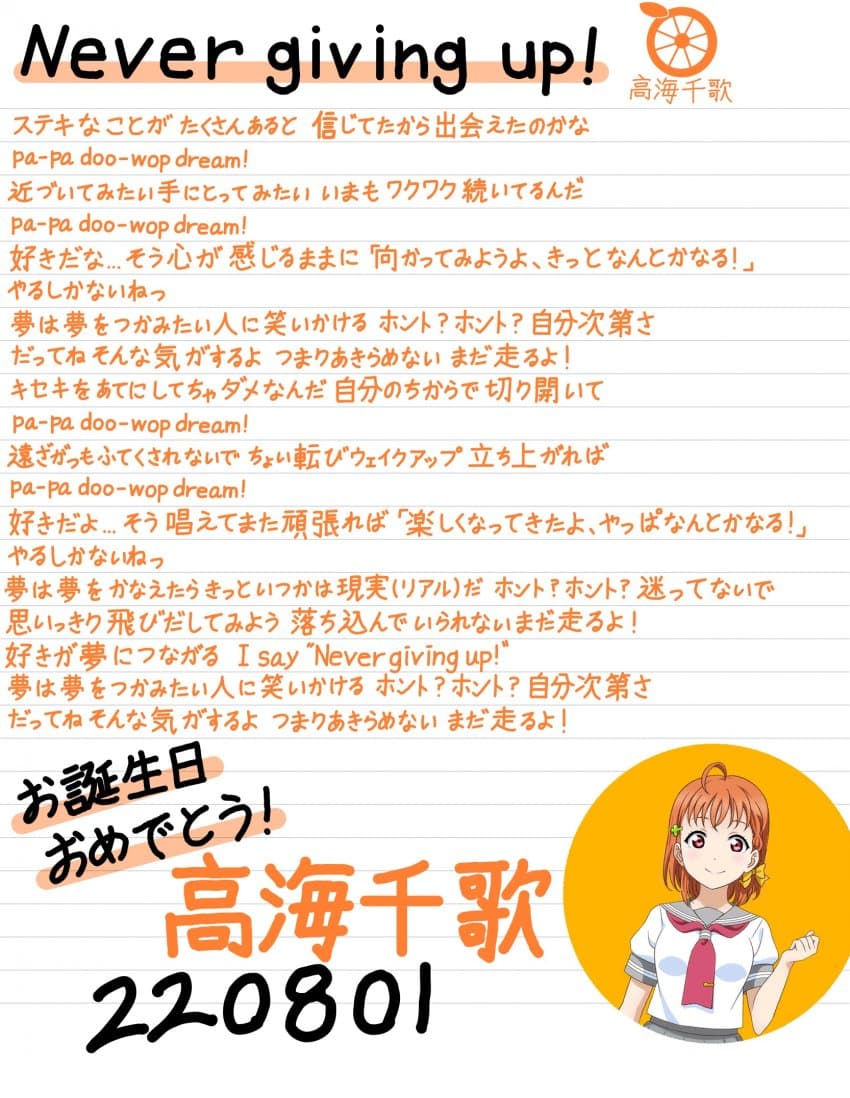 Never giving up!
高海千歌
ステキなことが たくさんあると 信じてたから出会えたのかな
pa-pa doo-wop dream!
近づいてみたい手にとってみたい いまも ワクワク続いてるんだ
pa-pa doo-wop dream!
好きだな...そう心が 感じるままに「向かってみようよ、きっとなんとかなる!」
やるしかないねっ
夢は夢をつかみたい人に笑いかける ホント?ホント?自分次第さ
だってね そんな気がするよ つまりあきらめない まだ走るよ!
キセキをあてにしてちゃダメなんだ 自分のちからで切り開いて
pa-pa doo-wop dream!
遠ざがっもふてくされないで ちょい転びウェイクアップ 立ち上がれば
pa-pa doo-wop dream!
好きだよ...そう唱えてまた頑張れば「楽しくなってきたよ、やっぱなんとかなる!」
やるしかないねっ
夢は夢をかなえたらきっといつかは現実(リアル)だ ホント?ホント?迷ってないで
思いっきり飛びだしてみよう 落ち込んでいられないまだ走るよ!
好きが夢につながる I say "Never giving up!"
夢は夢をつかみたい人に笑いかける ホント?ホント?自分次第さ
だってね そんな気がするよ つまりあきらめない まだ走るよ!
お誕生日
おめでとう!
高海千歌
220801